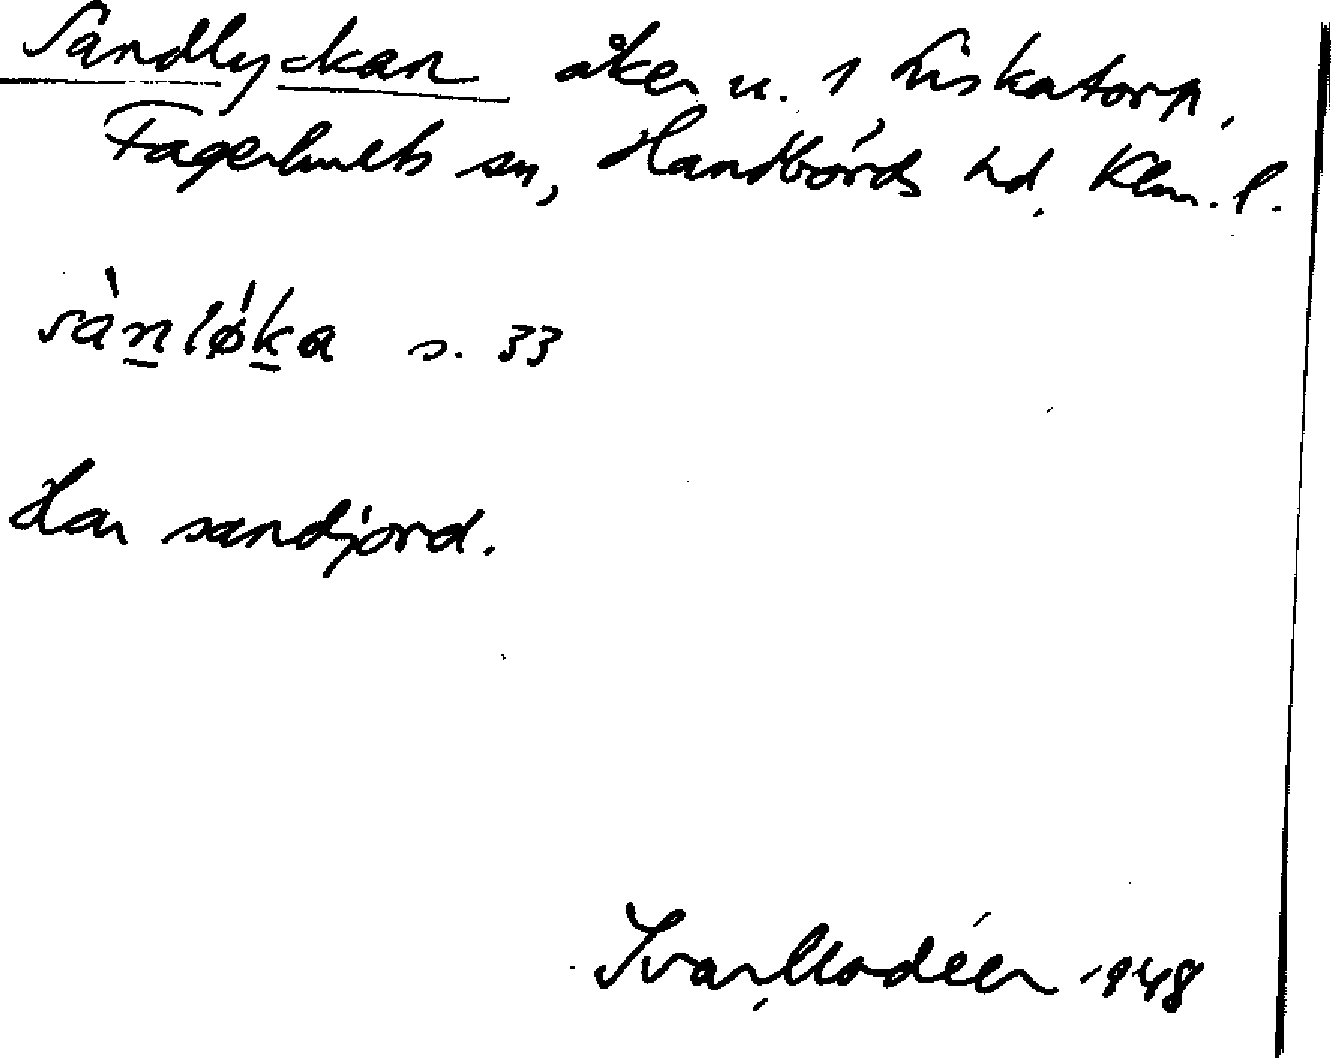 Sandlyckan åker u. 1 Liskatorp,
Fagerhults sn, Handbörds hd, Klm. l.
sànløka s. 33
Har sandjord.
Ivar Modéer 1948